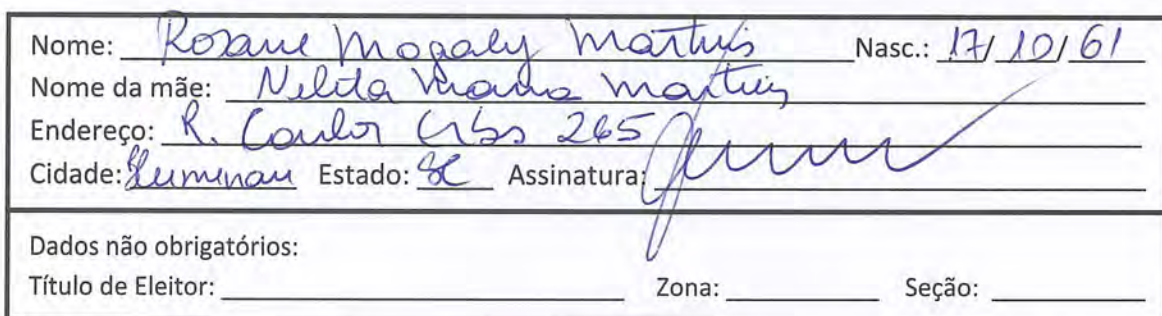 Nome: Rosane Magaly Martins Nasc.: 17/10/61
Nome da mãe: Nelita Maria Martins
Endereço: R. Carlos 265
Cidade: Blumenau Estado: SC Assinatura:
Dados não obrigatórios:
Título de Eleitor: Zona: Seção: